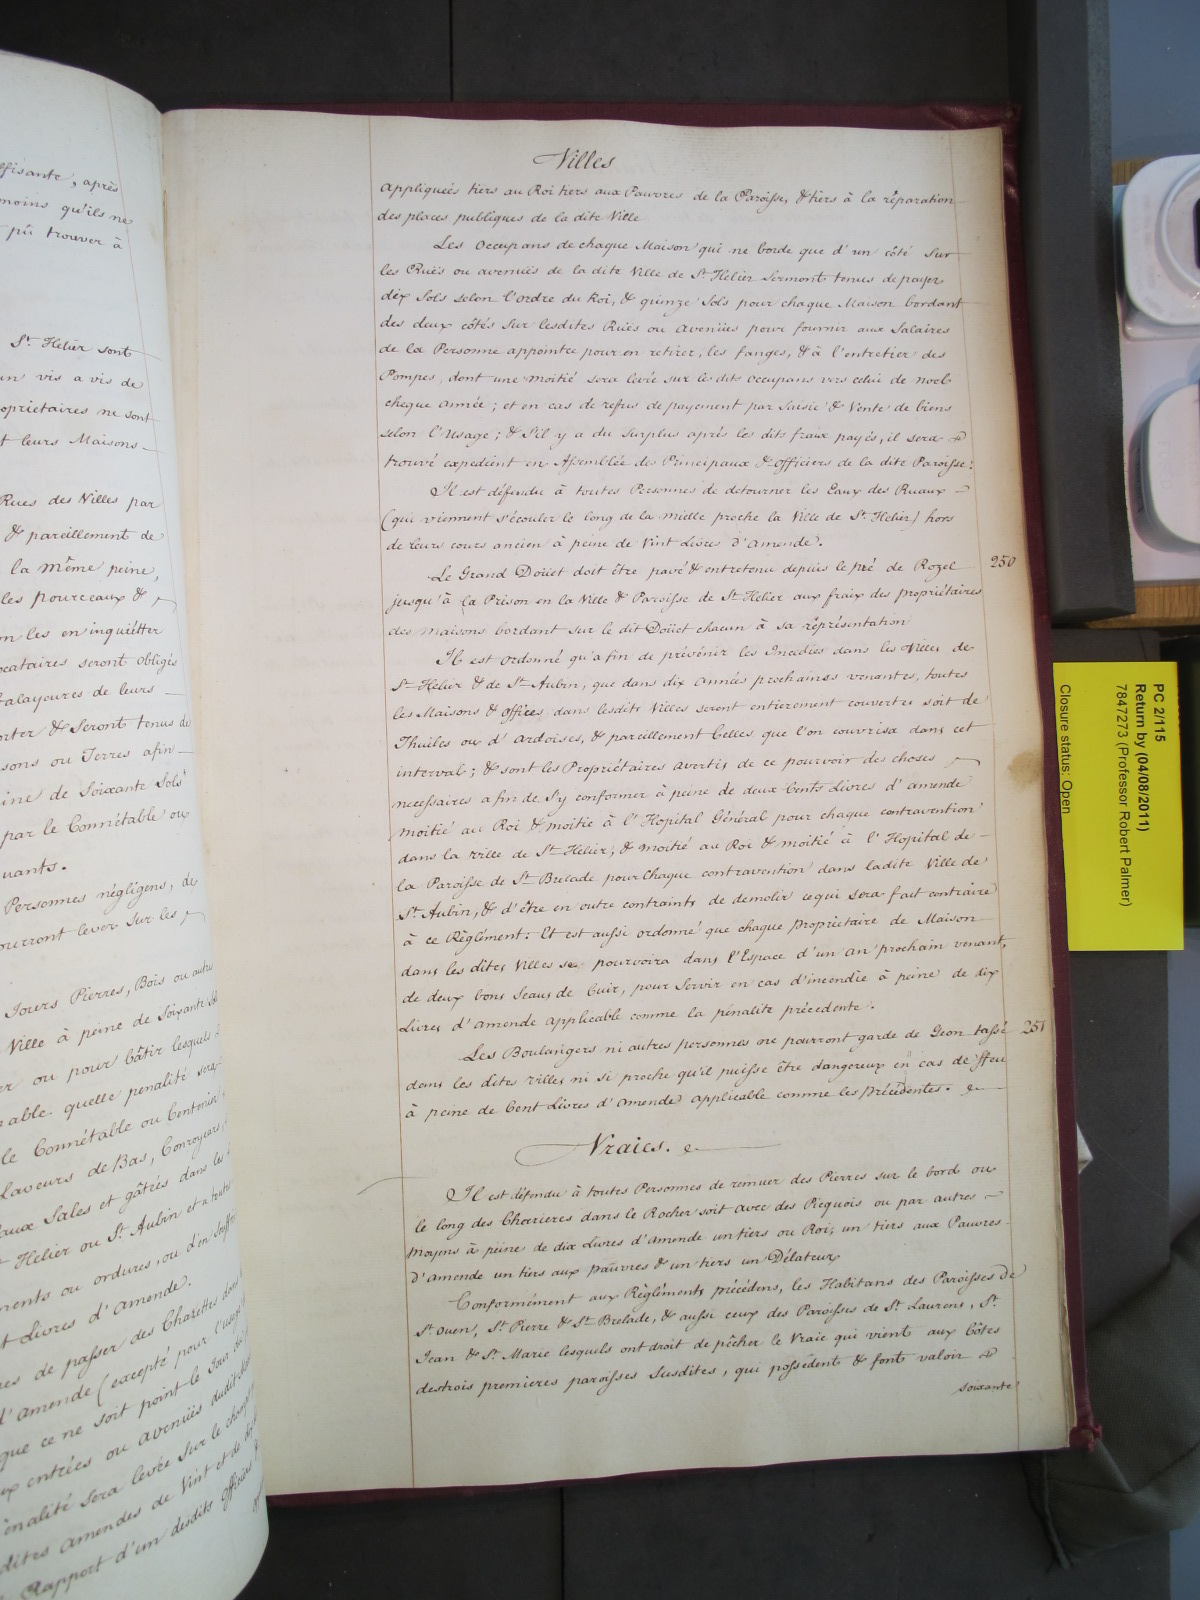 ffisante, après
moins qu'ils ne
pû trouver à
St. Helier sont
un vis a vis de
oprietaires ne sont
t leurs Maisons
Rues des Villes par
& pareillement de
la même peine,
les pourceaux &
on les en inquiêtter
ocataires seront obligés
balayeures de leurs
orter & Seront tenus de
sons ou Terres afin
ine de Soixante Sols
par le Connétable ou
uants.
Personnes négligens, de
ourront lever sur les
Jours Pierres, Bois ou autre
Ville à peine de Soixante Sols
er ou pour bâtir lesquels
nable. quelle penalité sera
le Connétable ou Centenier
Laveurs de Bas, Conroyeurs,
aux Sales et gâtés dans les
Helier ou St. Aubin et a toutes
ments ou ordures, ou d'en
t Livres d'Amende.
es de passer des Charettes dans
d'amende (excepté pour l'usage
que ce ne soit point le Jour du
ux entrées ou avenuës dudit
enalité Sera levée Sur le champ
dites amendes de Vint et de dix
Rapport d'un desdits Officiers
Villes
appliquées tiers au Roi tiers aux Pauvres de la Paroisse, & tiers à la réparation
des places publiques de la dite Ville
Les Occupans de chaque Maison qui ne borde que d'un côté Sur
les Ruës ou avenuës de la dite Ville de St. Helier Seront tenus de payer
dix Sols selon l'ordre du Roi, & quinze Sols pour chaque Maison bordant
des deux côtés Sur lesdites Ruës ou Avenuës pour fournir aux Salaires
de la Personne appointée pour en retirer, les fanges, & à l'entretien des
Pompes, dont une moitié sera levée sur les dits Occupans vers celui de noel
cheque année; et en cas de refus de payement par Saisie & Vente de biens
selon l'Usage; & S'il y a du Surplus aprés les dits fraix payés, il sera
trouvé expedient en Assemblée des Principaux & Officiers de la dite Paroisse:
Il est défendu à toutes Personnes de detourner les Eaux des Ruaux
(qui viennent s'écouler le long de la mielle proche la Ville de St. Helier) hors
de leurs cours ancien à peine de Vint Livres d'Amende.
Le Grand Doüet doit être pavé & entretenu depuis le pré de Rozel
250
jusqu'à la Prison en la Ville & Paroisse de St. Helier aux fraix des propriétaires
des maisons bordant sur le dit Doüet chacun à sa réprésentation
Il est ordonné qu'afin de prévénir les Incedies dans les Villes de
St. Helier & de St. Aubin, que dans dix années prochaines venantes, toutes
les Maisons & offices dans lesdits Villes seront entierement couvertes soit de
Thuiles ou d'Ardoises, & pareillement Celles que l'on couvrira dans cet
interval; & sont les Propriétaires avertis de ce pourvoir des choses
necessaires afin de S'y conformer à peine de deux Cents Livres d'amende
moitié au Roi & moitie à l'Hopital Général pour chaque contravention
dans la ville de St. Helier, & moitié au Roi & moitié à l'Hopital de
la Paroisse de St. Brelade pour Chaque contravention dans ladite Ville de
St. Aubin, & d'être en outre contraints de demolir cequi sera fait contraire
à ce Règlément: Et est aussi ordonné que chaque Propriétaire de Maison
dans les dites Villes se pourvoira dans l'Espace d'un an prochain venant,
de deux bons Seaus de Cuir, pour Servir en cas d'incendie à peine de dix
Livres d'amende applicable comme la pénalité précedente.
Les Boulangers ni autres personnes ne pourront garde de Geon tassé
251
dans les dites villes ni si proche qu'il puisse être dangereux en cas de ffeu
à peine de Cent Livres d'Amende applicable comme les Précédentes.
Vraics.
Il est défendu à toutes Personnes de remuer des Pierres sur le bord ou
le long des Charieres dans le Rocher soit avec des Picquois ou par autres
Moyens à peine de dix Livres d'amende un tiers ou Roi, un tiers aux Pauvres
d'amende un tiers aux pauvres & un tiers un Délateur
Conformément aux Règléments précédens, les Habitans des Paroisses de
St. Ouen, St. Pierre & St. Brelade, & aussi ceux des Paroisses de St. Laurens, St.
Jean & St. Marie lesquels ont droit de pêcher le Vraic qui vient aux Côtes
des trois premieres paroisses Susdites, qui possedent & font valoir
soixante
PC 2/115
Return by (04/08/2011)
7847273 (Professor Robert Palmer)
Closure status: Open